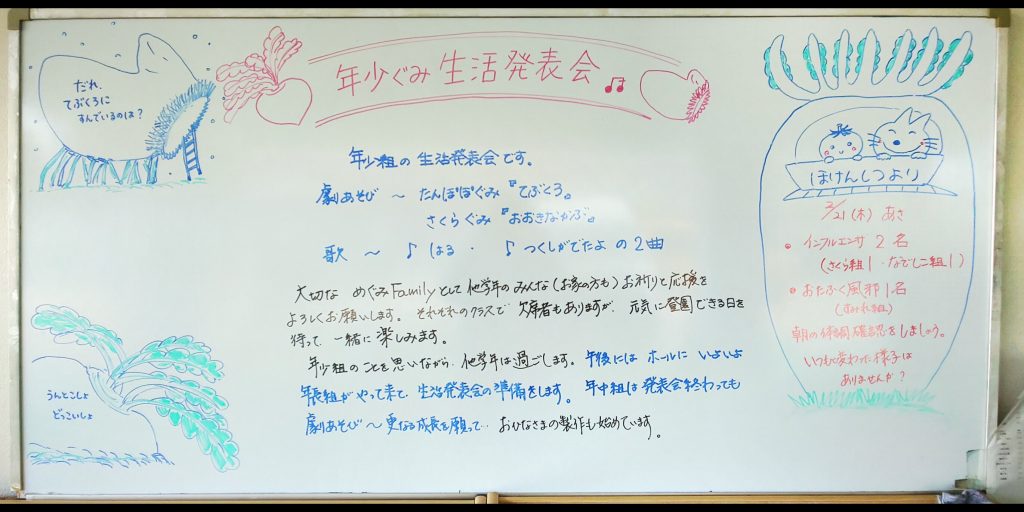 だれ、
てぶくろに
すんでいるのは？
年少ぐみ 生活発表会
年少組の 生活発表会です。
劇あそび 〜 たんぽぽぐみ『てぶくろ』
さくらぐみ『おおきなかぶ』
歌 〜 ♪ はる ・ ♪ つくしがでたよ の2曲
大切な めぐみFamilyとして 他学年のみんな（お家の方も）お祈りと応援を
よろしくお願いします。 それぞれのクラスで 欠席者もありますが、 元気に登園できる日を
待って、一緒に楽しみます。
年少組のことを思いながら、他学年は過ごします。 午後には ホールに いよいよ
年長組がやって来て、生活発表会の準備をします。 年中組は発表会終わっても
劇あそび〜更なる成長を願って… おひなさまの製作も始めています。
うんとこしょ
どっこいしょ
ほけんしつより
2/21（木）あさ
インフルエンザ 2名
（さくら組1・なでしこ組1）
おたふく風邪1名
（すみれ組）
朝の体調確認をしましょう。
いつもと変わった様子は
ありませんか？